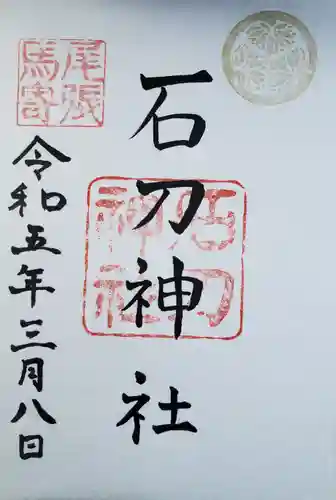 石刀神社
石刀
神社
尾張
馬寄
令和五年三月八日